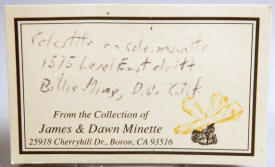 Celestite on colemanite
1515 Level East drift
Billie Mine, D.V. Calif.
From the Collection of
James & Dawn Minette
25918 Cherryhill Dr., Boron, CA 93516